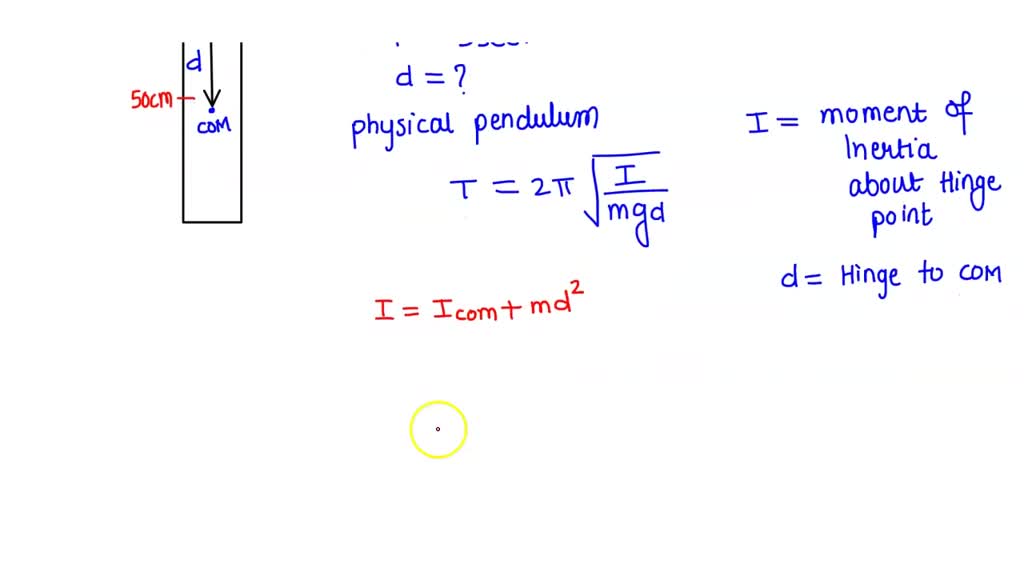 d
50cm
COM
d = ?
physical pendulum
T = 2π √(I/mgd)
I = Icom + md²
I = moment of
Inertia
about Hinge
point
d = Hinge to COM